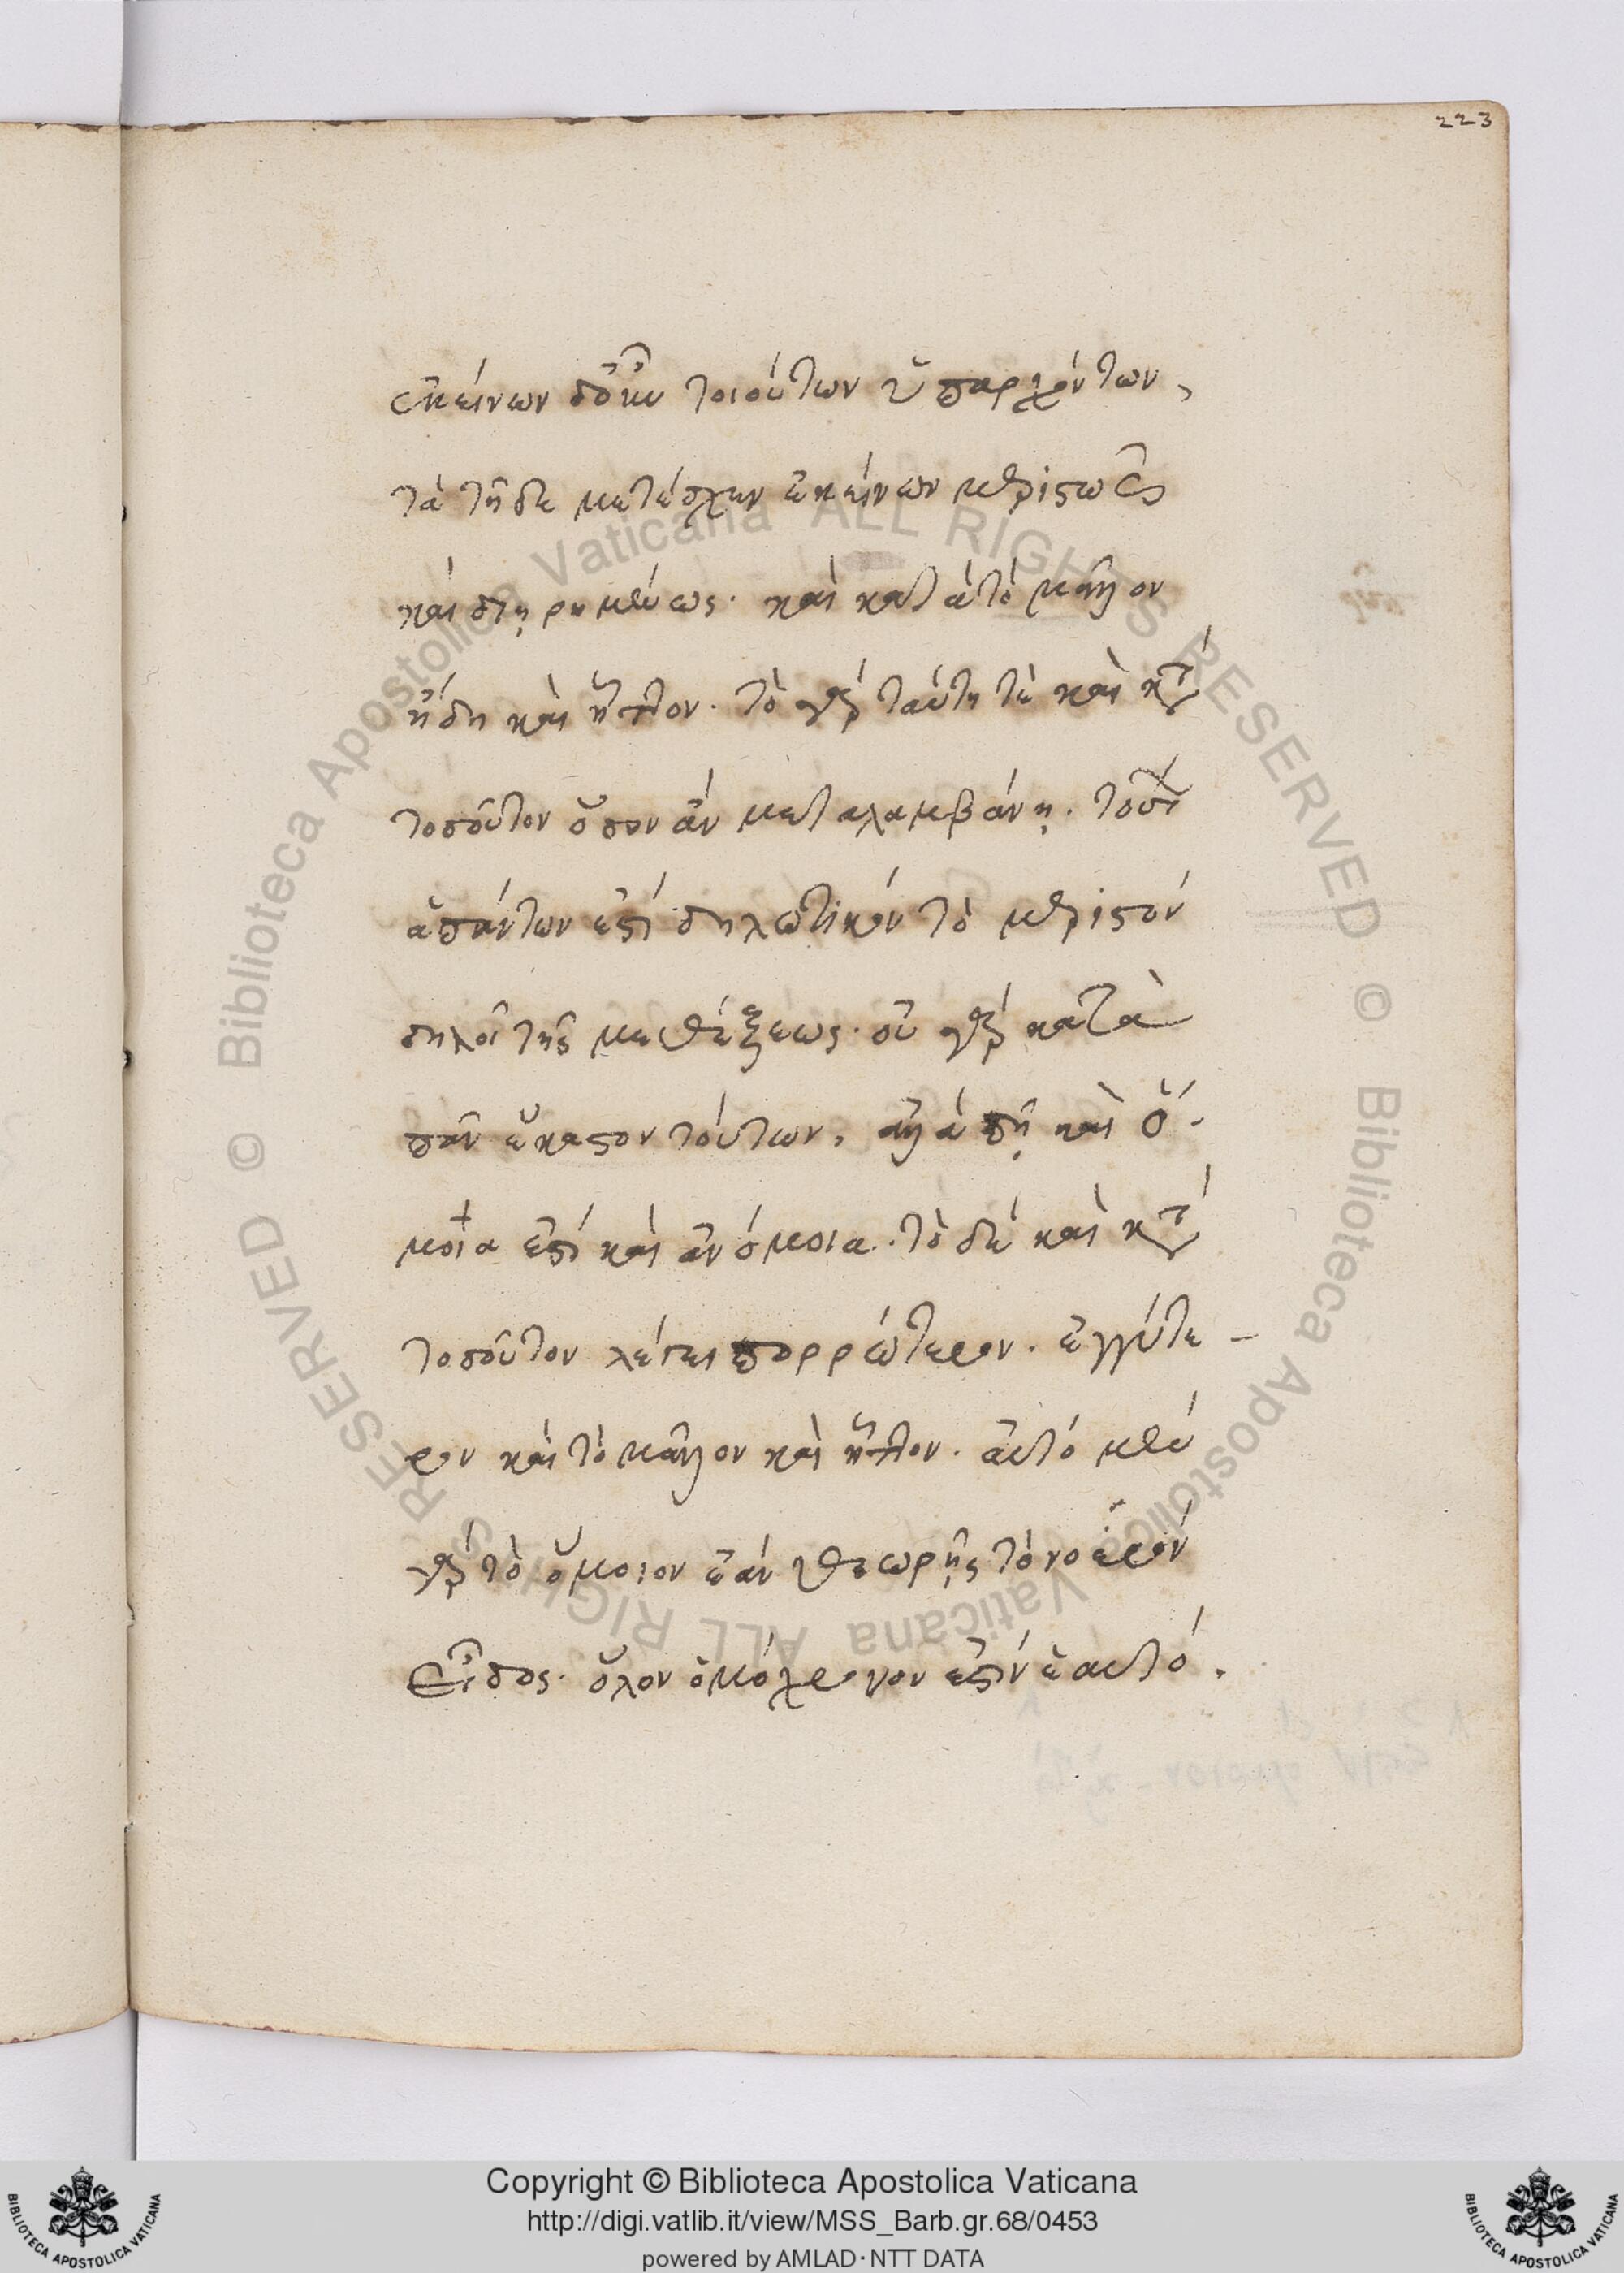 223
ἐκείνων δ' οὖν τοιούτων ὑπαρχόντων,
τὰ τῆδε μετέσχεν ἐκείνων μεριστῶς
καὶ διῃρημένως. καὶ κατὰ τὸ μᾶλλον
ἤδη καὶ ἧττον. τὸ γὰρ ταύτη τὲ καὶ κατὰ
τοσοῦτον ὅσον ἂν μεταλαμβάνῃ.
ἁπάντων ἐστὶ δηλωτικὸν τὸ μεριστὸν
δηλοῖ τῆς μεθέξεως. οὐ γὰρ κατὰ
πᾶν ἕκαστον τούτων, ἀλλά πῃ καὶ ὅ-
μοια ἐστὶ καὶ ἀνόμοια. τὸ δὲ καὶ κατὰ
τοσοῦτον λέγει πορρώτερον. ἐγγύτε-
ρον καὶ τὸ μᾶλλον καὶ ἧττον. αὐτὸ μὲν
γὰρ τὸ ὅμοιον ἐὰν θεωρῇς τὸ νοερὸν
εἶδος. ὅλον ὁμόχρονον ἐστὶν ἑαυτό.
Copyright © Biblioteca Apostolica Vaticana
http://digi.vatlib.it/view/MSS_Barb.gr.68/0453
powered by AMLAD·NTT DATA
BIBLIOTECA APOSTOLICA VATICANA
BIBLIOTECA APOSTOLICA VATICANA
© Biblioteca Apostolica Vaticana ALL RIGHTS RESERVED
© Biblioteca Apostolica Vaticana ALL RIGHTS RESERVED